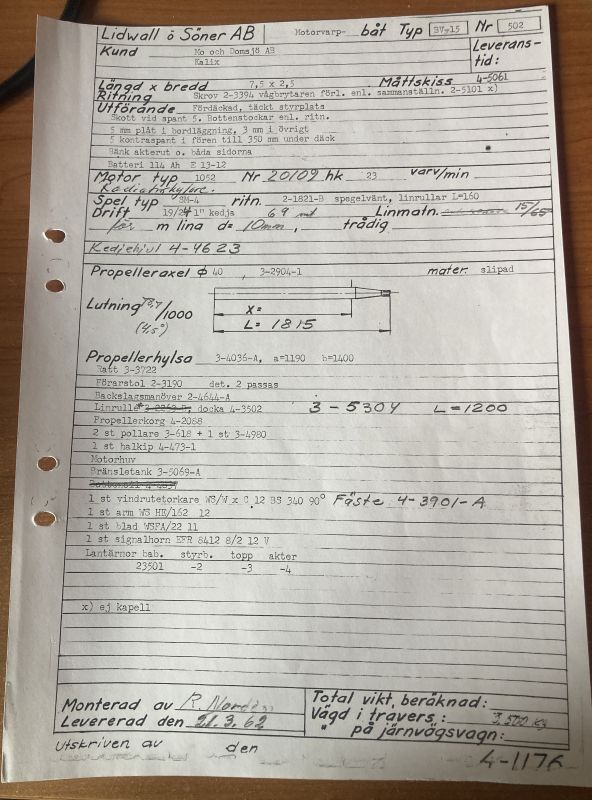 Lidwall ö Söner AB Motorvarp- båt Typ B7-15 Nr 502
Kund Mo och Domsjö AB Leverans-
Kalix tid:
Längd x bredd 7,5 x 2,5 Måttskiss 4-5061
Ritning Skrov 2-3394 vågbrytaren förl. enl. sammanställn. 2-5101 x)
Utförande Fördäckad, täckt styrplats
Skott vid spant 5. Bottenstockar enl. ritn.
5 mm plåt i bordläggning, 3 mm i övrigt
5 kontraspant i fören till 350 mm under däck
Bänk akterut o. båda sidorna
Batteri 114 Ah E 13-12
Motor typ 1052 Nr 20109 hk 23 varv/min
Radiatorkylare.
Spel typ 2M-4 ritn. 2-1821-B spegelvänt, linrullar L=160
Drift 19/24 1" kedja 69 Linmatn. 15/65
för m lina d= 10mm, trådig
Kedjehjul 4-4623
Propelleraxel ϕ 40 , 3-2904-1 mater. slipad
Lutning 78,7/1000
(4,5°)
X=
L= 1815
Propellerhylsa 3-4036-A, a=1190 b=1400
Ratt 3-3722
Förarstol 2-3190 det. 2 passas
Backslagsmanöver 2-4644-A
Linrulle docka 4-3502 3-5304 L=1200
Propellerkorg 4-2088
2 st pollare 3-618 + 1 st 3-4980
1 st halkip 4-473-1
Motorhuv
Bränsletank 3-5069-A
1 st vindrutetorkare WS/W x C 12 BS 340 90° Fäste 4-3901-A
1 st arm WS HE/162 12
1 st blad WSFA/22 11
1 st signalhorn EFR 8412 8/2 12 V
Lantärnor bab. styrb. topp akter
23501 -2 -3 -4
x) ej kapell
Monterad av R.
Levererad den 21.3.62
Total vikt, beräknad:
Vägd i travers.: 3,500 kg
" på järnvägsvagn:
Utskriven av den
4-1176